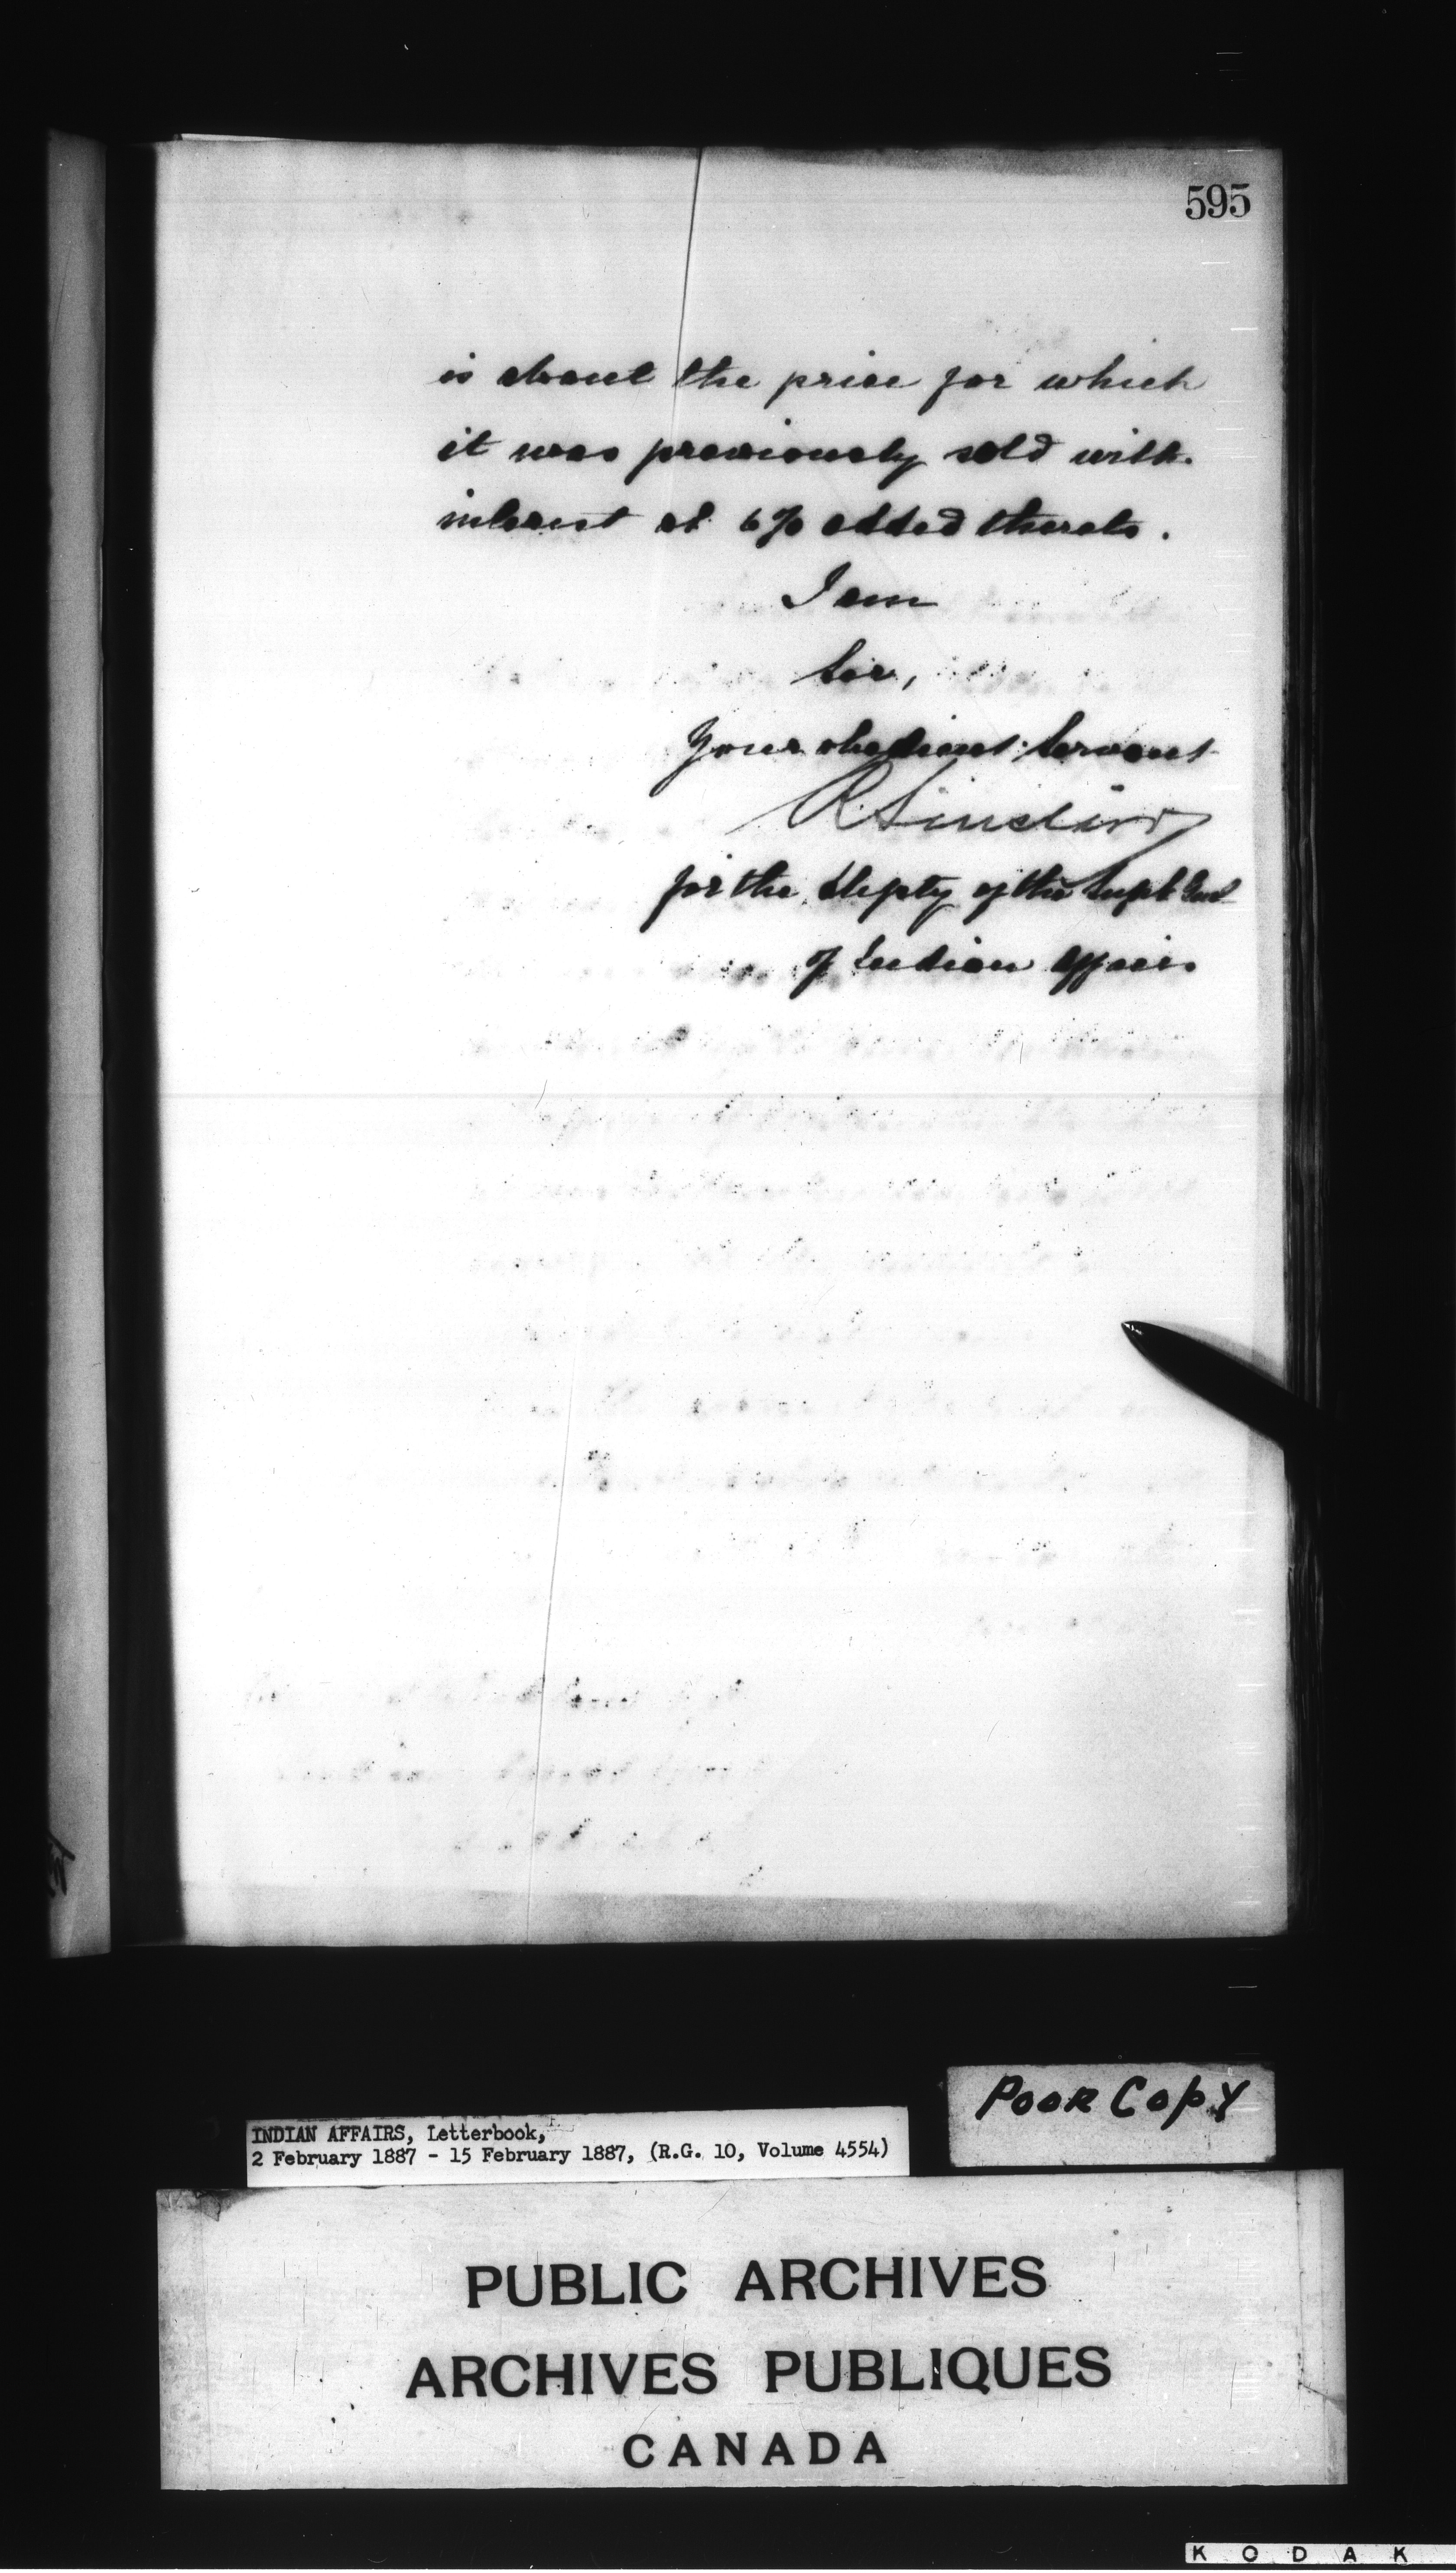 595
is about the price for which
it was previously sold with
interest at 6% added thereto.
I am
Sir,
Your obedient Servant
R Sinclair
for the Depty of the Supt Genl
of Indian Affairs
Poor Copy
INDIAN AFFAIRS, Letterbook,
2 February 1887 - 15 February 1887, (R.G. 10, Volume 4554)
PUBLIC ARCHIVES
ARCHIVES PUBLIQUES
CANADA
KODAK